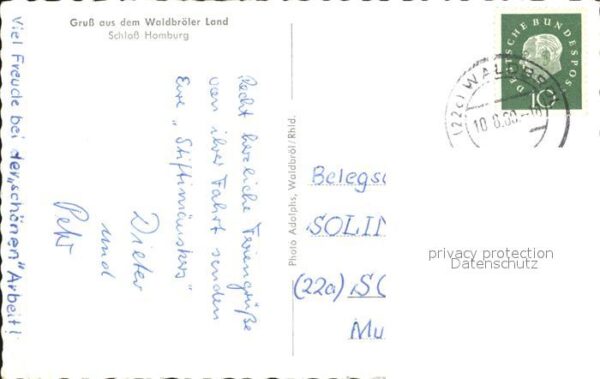 Gruß aus dem Waldbröler Land
Schloß Homburg
Recht herzliche Feriengrüße
von ihrer Fahrt senden
Eure „Stiftimäuskes“
Dieter
und
Peter
Viel Freude bei der „schönen“ Arbeit!
Photo Adolphs, Waldbröl/Rhld.
DEUTSCHE BUNDESPOST
10
(22c) WALDBRÖL
10.8.60.-18
Belegsc
SOLIN
(22a) SO
Mu
privacy protection
Datenschutz